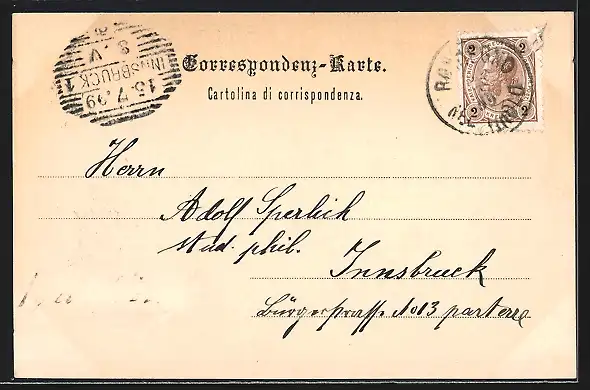 Correspondenz-Karte.
Cartolina di corrispondenza.
INNSBRUCK 1
15.7.99
8.V
2 2
2 2
Herrn
Adolf Sperlich
stud. phil.
Innsbruck
Bürgerstrasse No 13 parterre